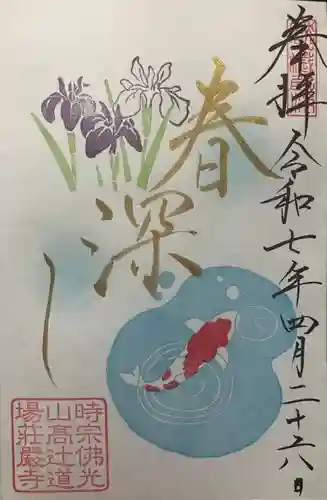 奉拝 令和七年四月二十六日
春深し
時宗佛光
山高辻道
場荘嚴寺